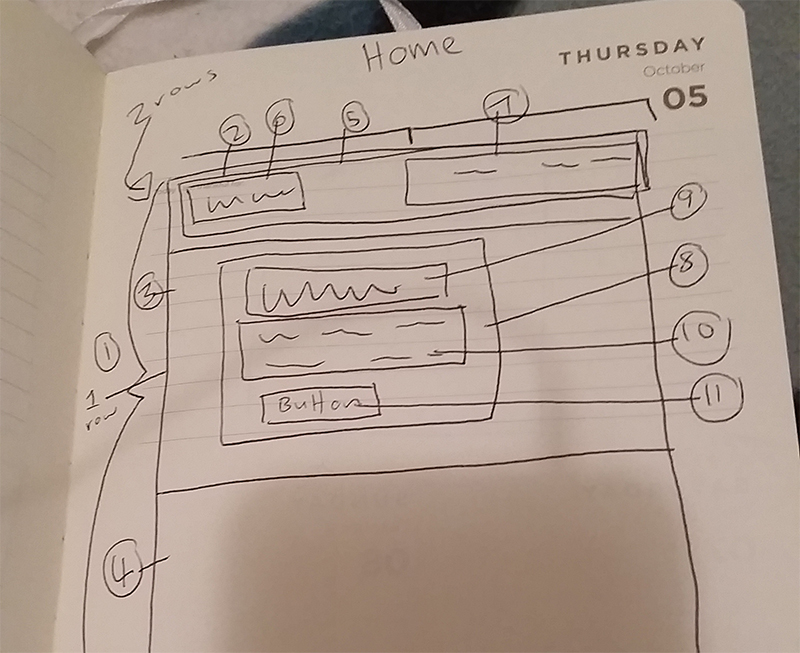 Home
THURSDAY
October
05
2 rows
2
6
5
7
9
3
8
1
10
1
row
Button
11
4